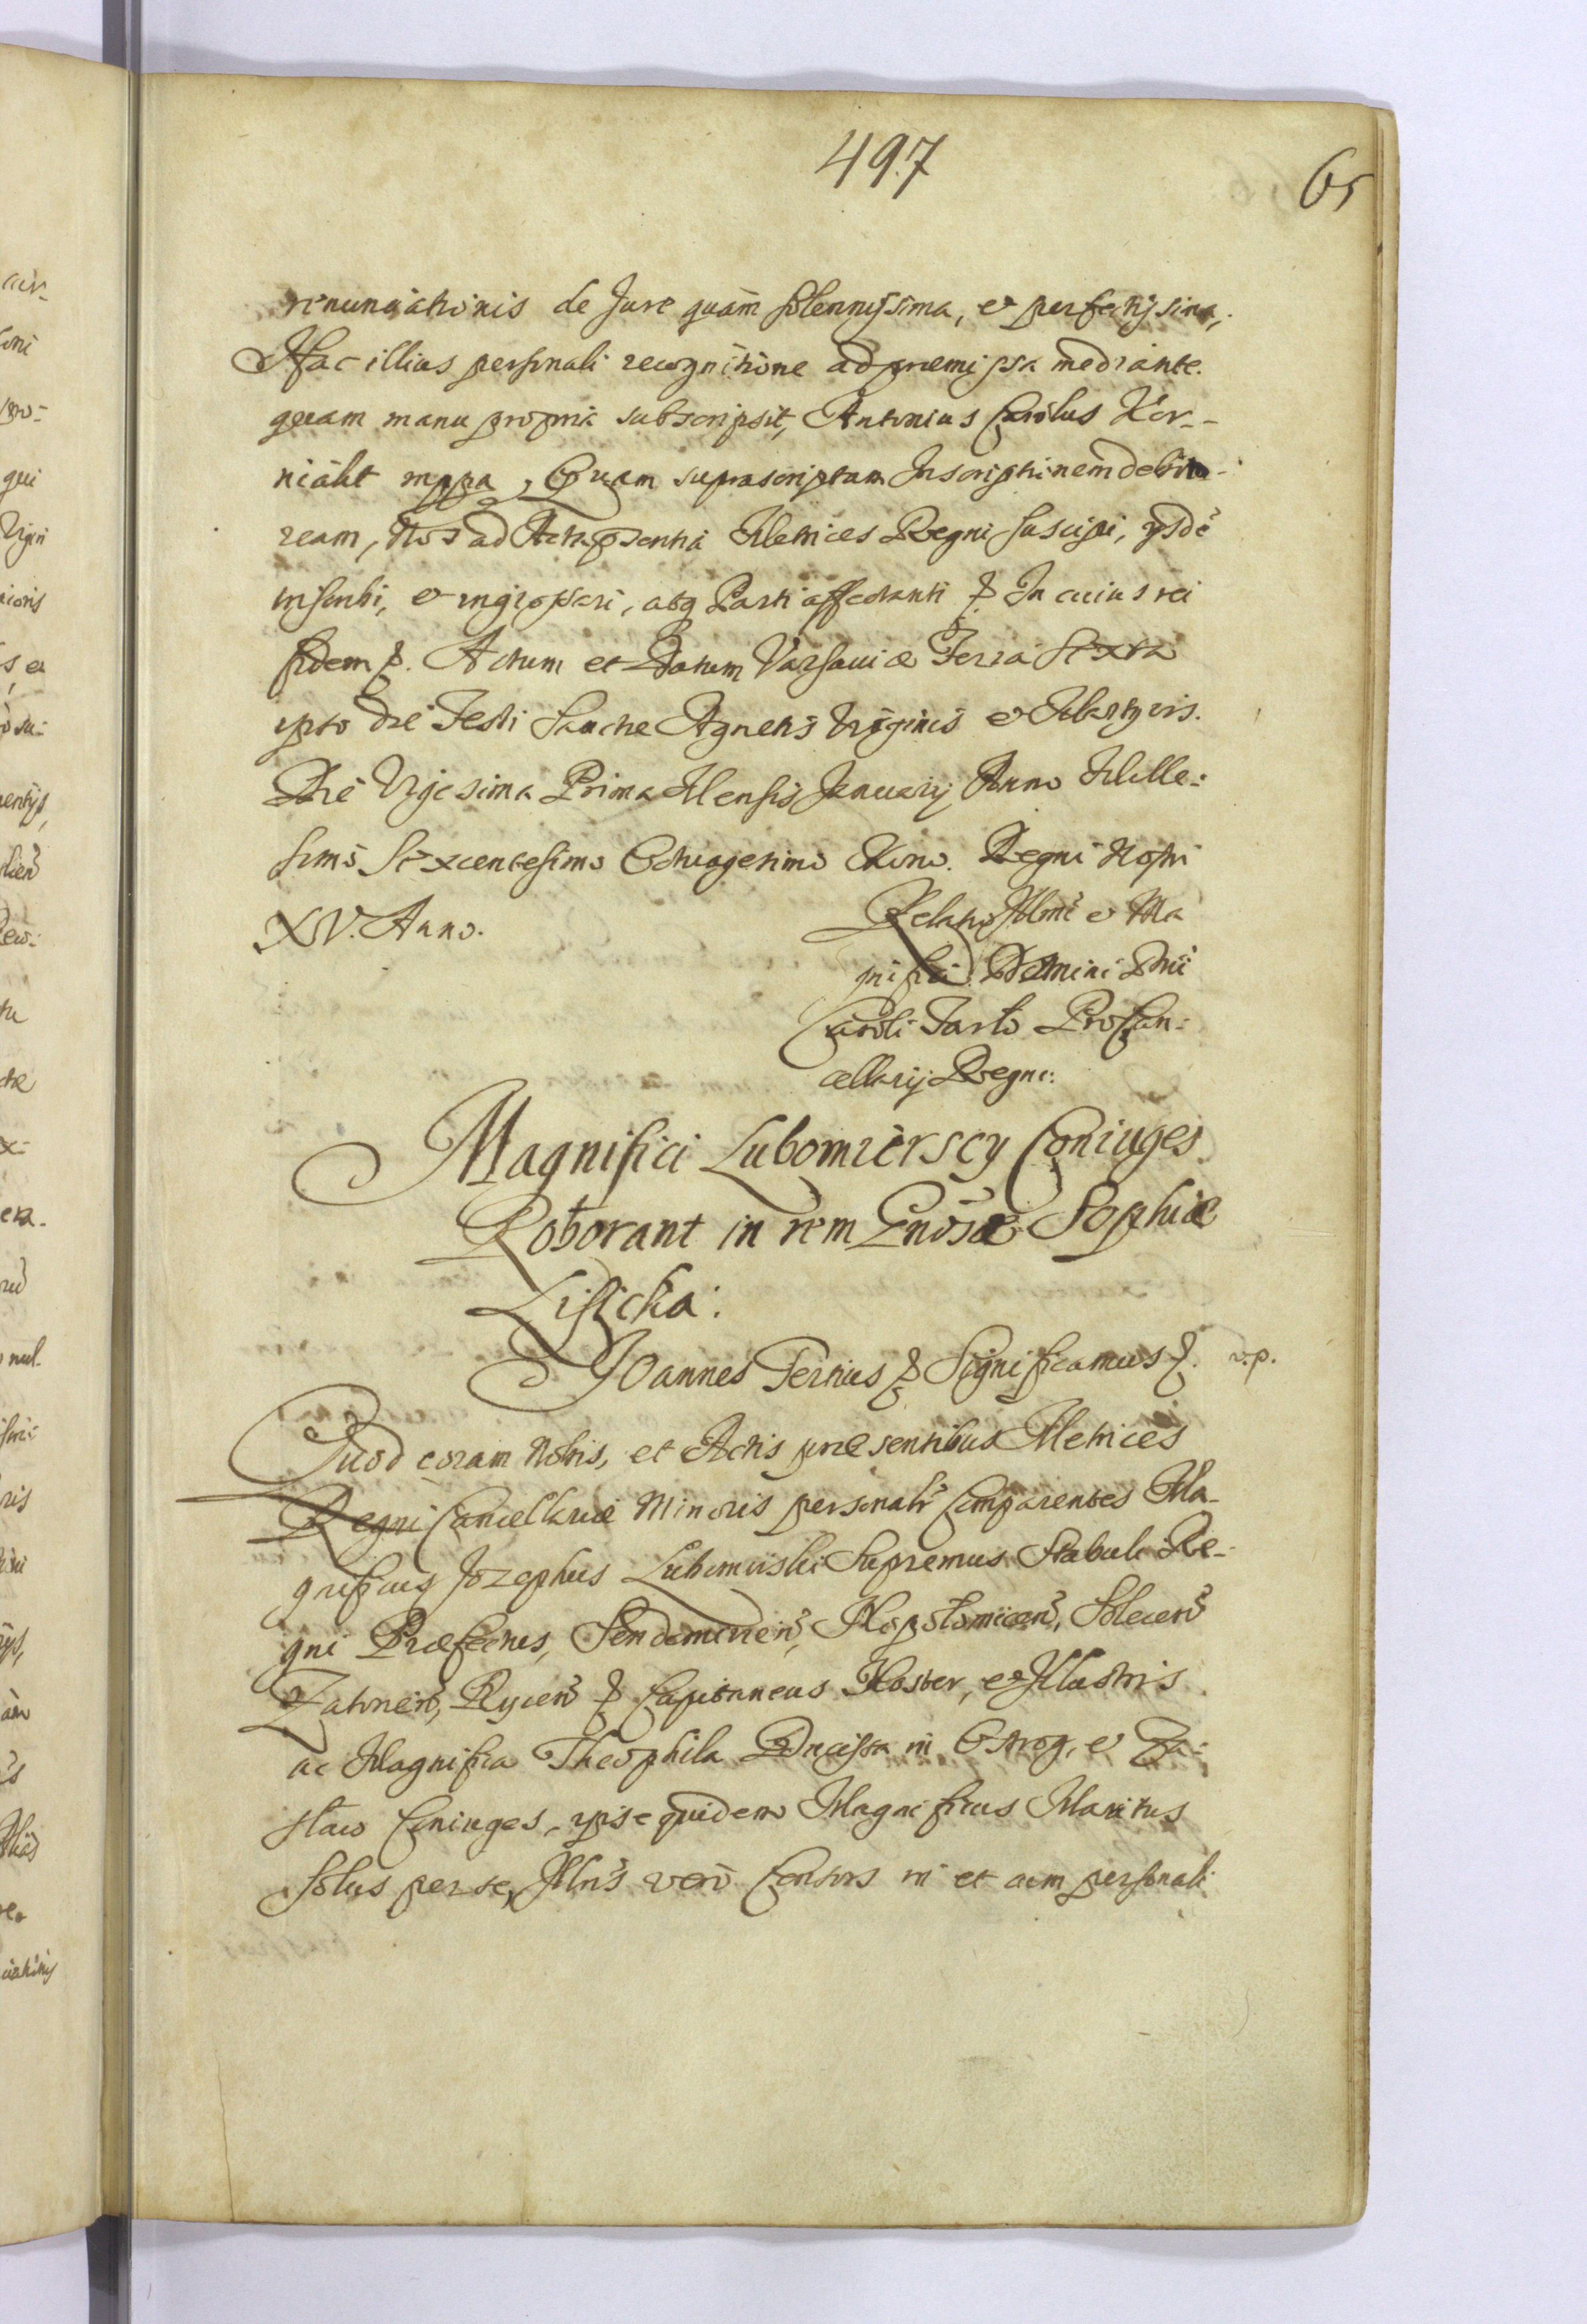 497
65
renunciationis de Jure quam solennissima, et perfectissima,
Hac illius personali recognitione ad praemissa mediante.
quam manu propria subscripsit, Antonius Carolus Kor-
niakt mppa, Quam suprascriptam Inscriptinem debito-
ream, Nos ad Acta psentia Metrices Regni suscipi, ysdē
inscribi, et ingrossari, atq Parti affectanti & In cuius rei
fidem &. Actum et Datum Varsaviæ Feria Sexta
ipso die Festi Sanctæ Agnetis Virginis et Martyris.
Die Vigesima Prima Mensis January Anno Mille-
simo Sexcentesimo Octuagesimo Nono. Regni Nostri
XV. Anno.
Relatio Illmi et Ma
gnifici Domini Dnī
Caroli Tarło ProCan-
cellarij Regni:
Magnifici Lubomierscy Coniuges
Roborant in rem Gnosæ Sophiæ
Lisicka:
Joannes Tertius & Significamus &. v.p.
Quod coram Nobis, et Actis præsentibus Metrices
Regni Cancellariæ Minoris personalr Comparentes Ma-
gnificus Jozephus Lubomirski Supremus Stabuli Re-
gni Præfectus, Sendomirien, Nopolomicen, Solecen
Zatorien, Rycen & Capitaneus Noster, et Illustris
ac Magnifica Theophila Ducissa in Ostrog, et Za-
sław Coniuges, ipse quidem Magnificus Maritus
solus per se, Illris vero Consors in et cum personali